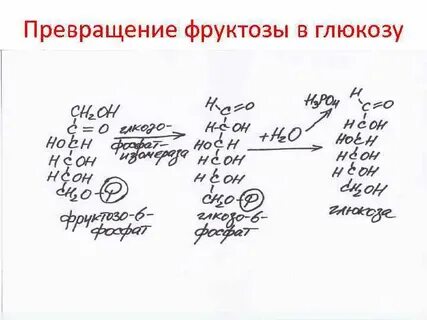 Превращение фруктозы в глюкозу
CH2OH
C=O
HOCH
HCOH
HCOH
CH2O-P
фруктозо-6-
фосфат
глкозо-
фосфат-
изомераза
H C=O
HCOH
HOCH
HCOH
HCOH
CH2O-P
глкозо-6-
фосфат
+H2O
H3PO4
H C=O
HCOH
HOCH
HCOH
HCOH
CH2OH
глюкоза